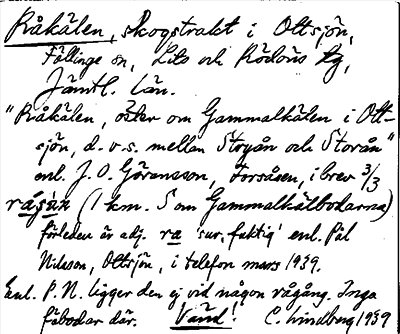 Råkälen, skogstrakt i Ottsjön,
Föllinge sn, Lits och Rödöns tg,
Jämtl. län.
"Råkälen, öster om Gammalkälen i Ott-
sjön, d.v.s. mellan Storån och Storån"
enl. J. O. Göransson, Forsåsen, i brev 3/3
(1 km. S om Gammalkälbodarna)
förleden är adj. ra 'sur, fuktig' enl. Pål
Nilsson, Ottsjön, i telefon mars 1939.
Enl. P. N. ligger den ej vid någon rågång. Inga
fäbodar där. Vänd! C. Lindberg 1939